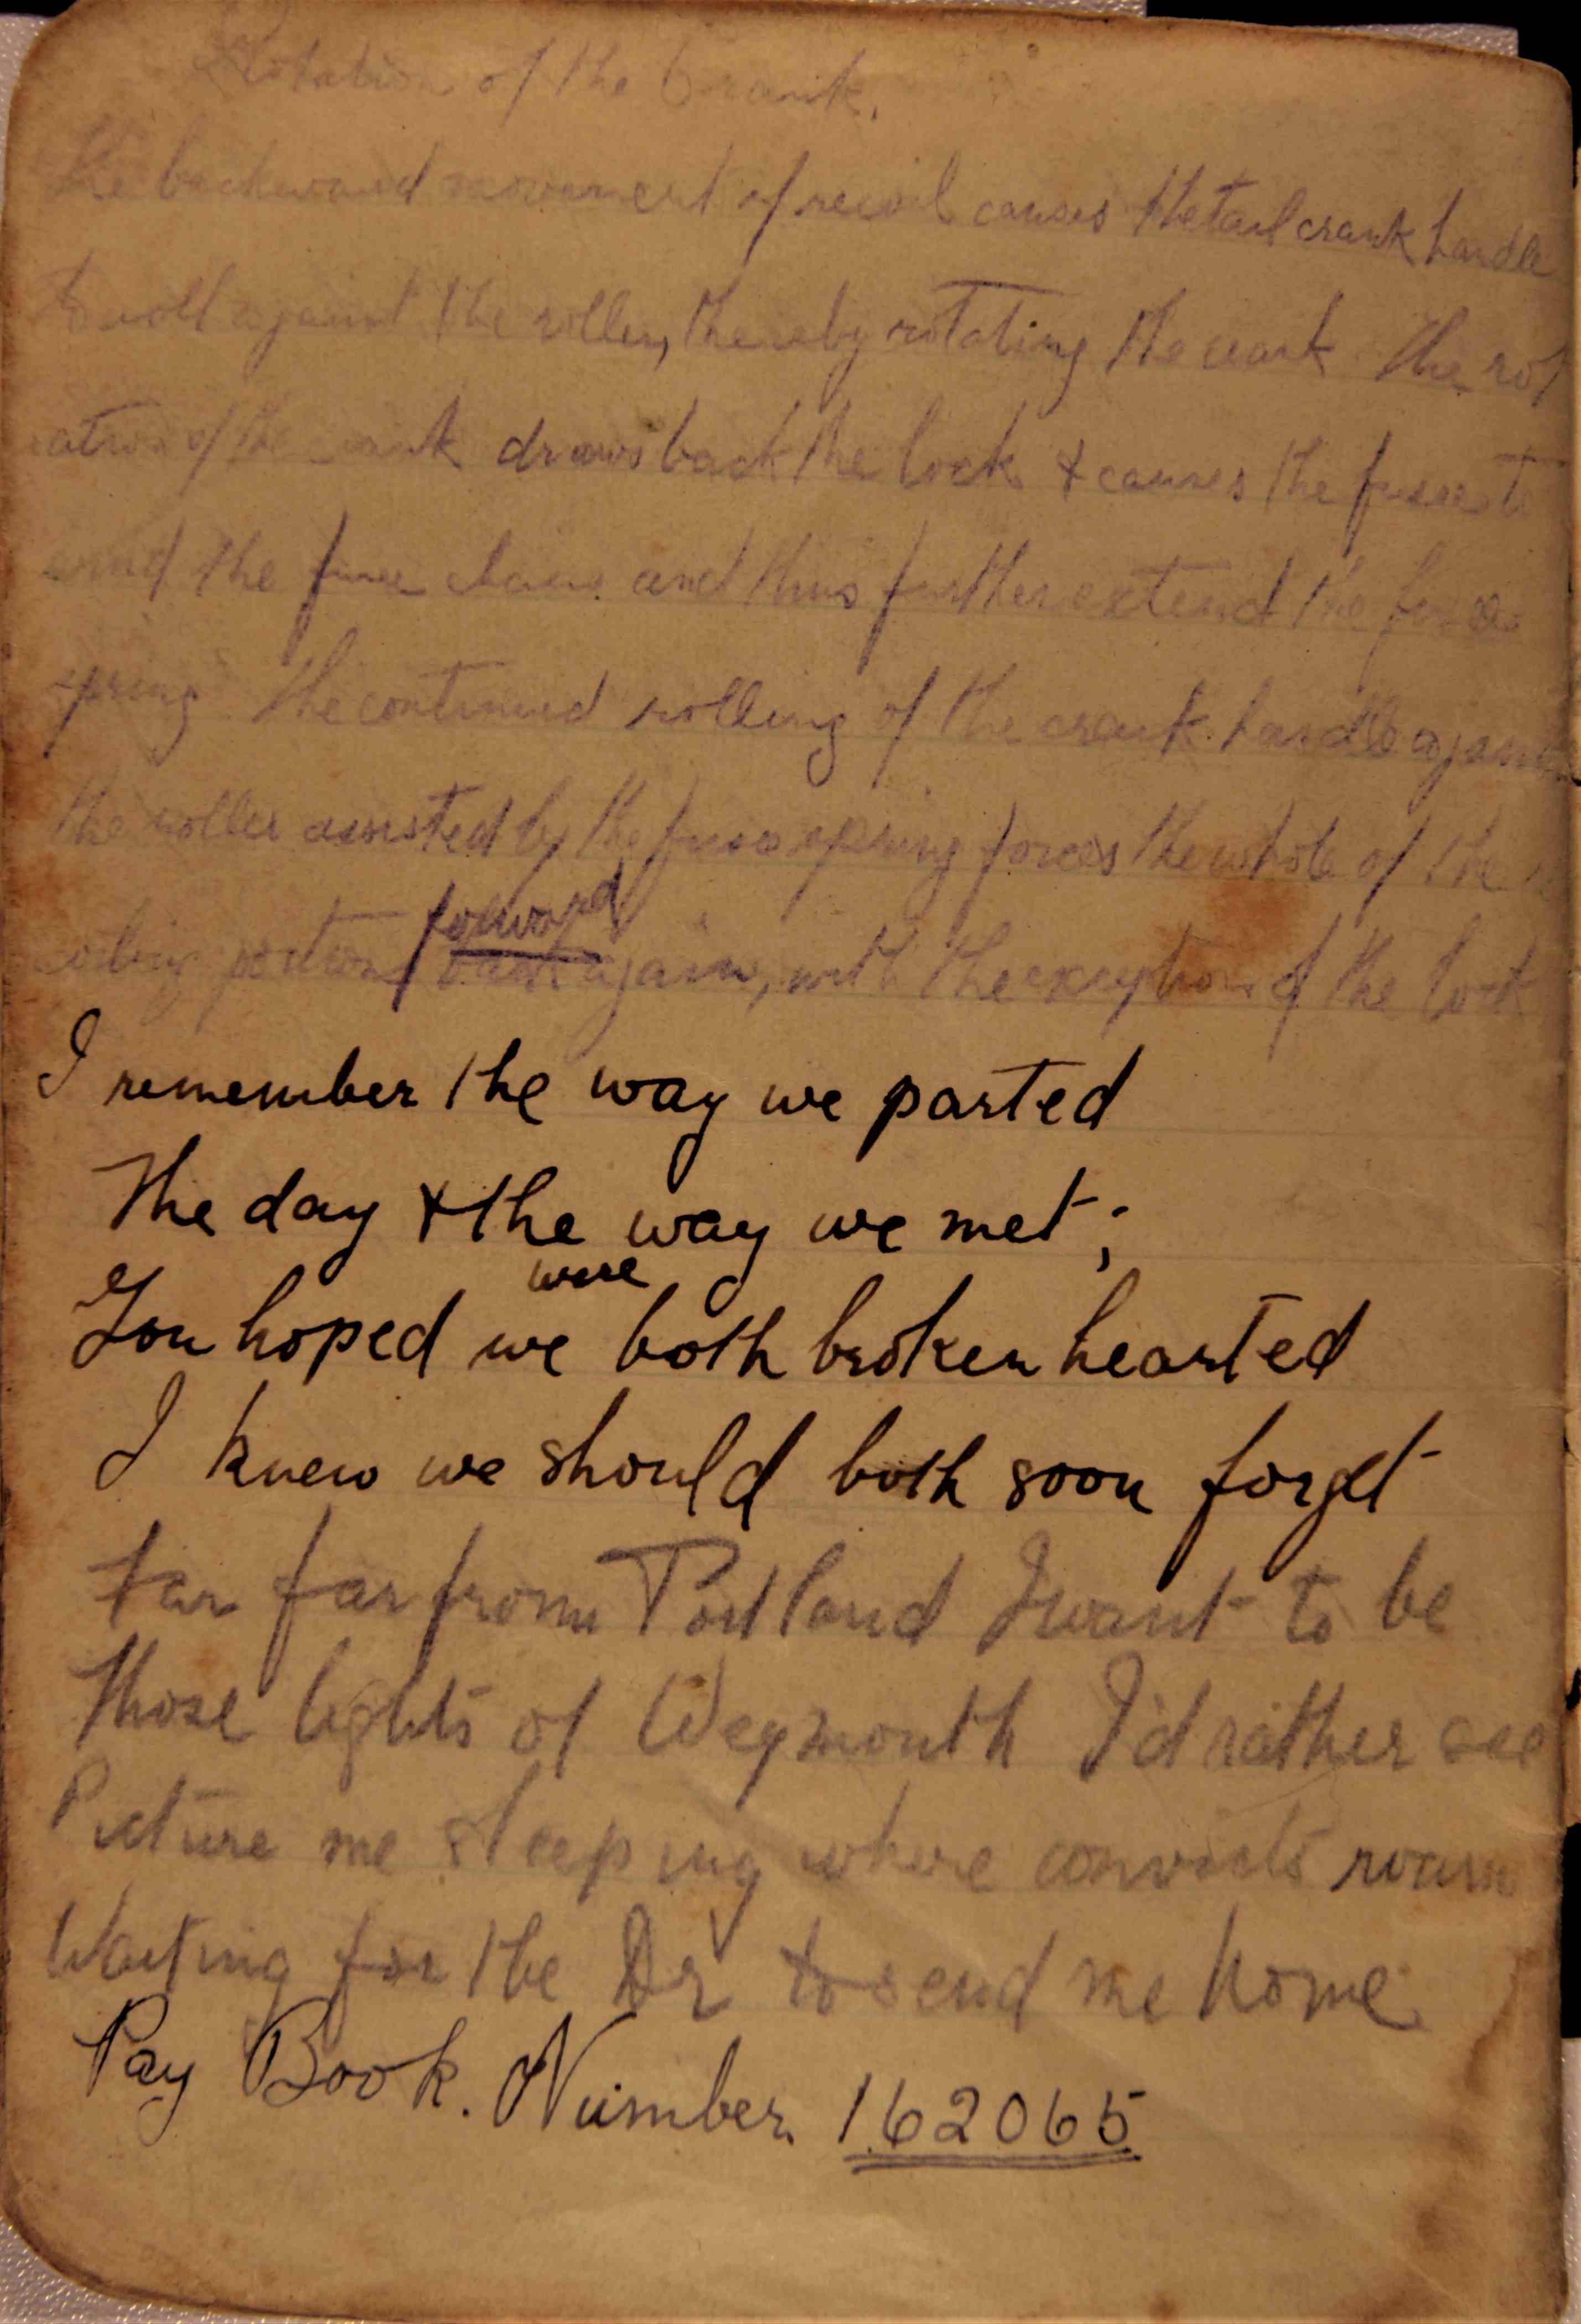 Rotation of the Crank.
The backward movement of recoil causes the tail crank handle
to roll against the roller, thereby rotating the crank. The rot
ation of the crank draws back the lock & causes the fusee to
wind the fusee chain and thus further extend the fusee
spring. The continued rolling of the crank handle against
the roller assisted by the fusee spring forces the whole of the
forward
coiling portions back again, with the exception of the lock
I remember the way we parted
The day & the way we met;
were
You hoped we both broken hearted
I knew we should both soon forget
Far far from Portland I want to be
Those lights of Weymouth I'd rather see
Picture me sleeping where convicts roam
Waiting for the Dr to send me home.
Pay Book. Number 162065